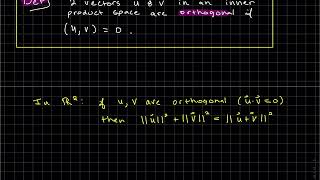 Def 2 vectors u & v in an inner
product space are orthogonal if
(u, v) = 0 .
In ℝ²: if u, v are orthogonal (u⃗·v⃗=0)
then ||u⃗||² + ||v⃗||² = ||u⃗+v⃗||²